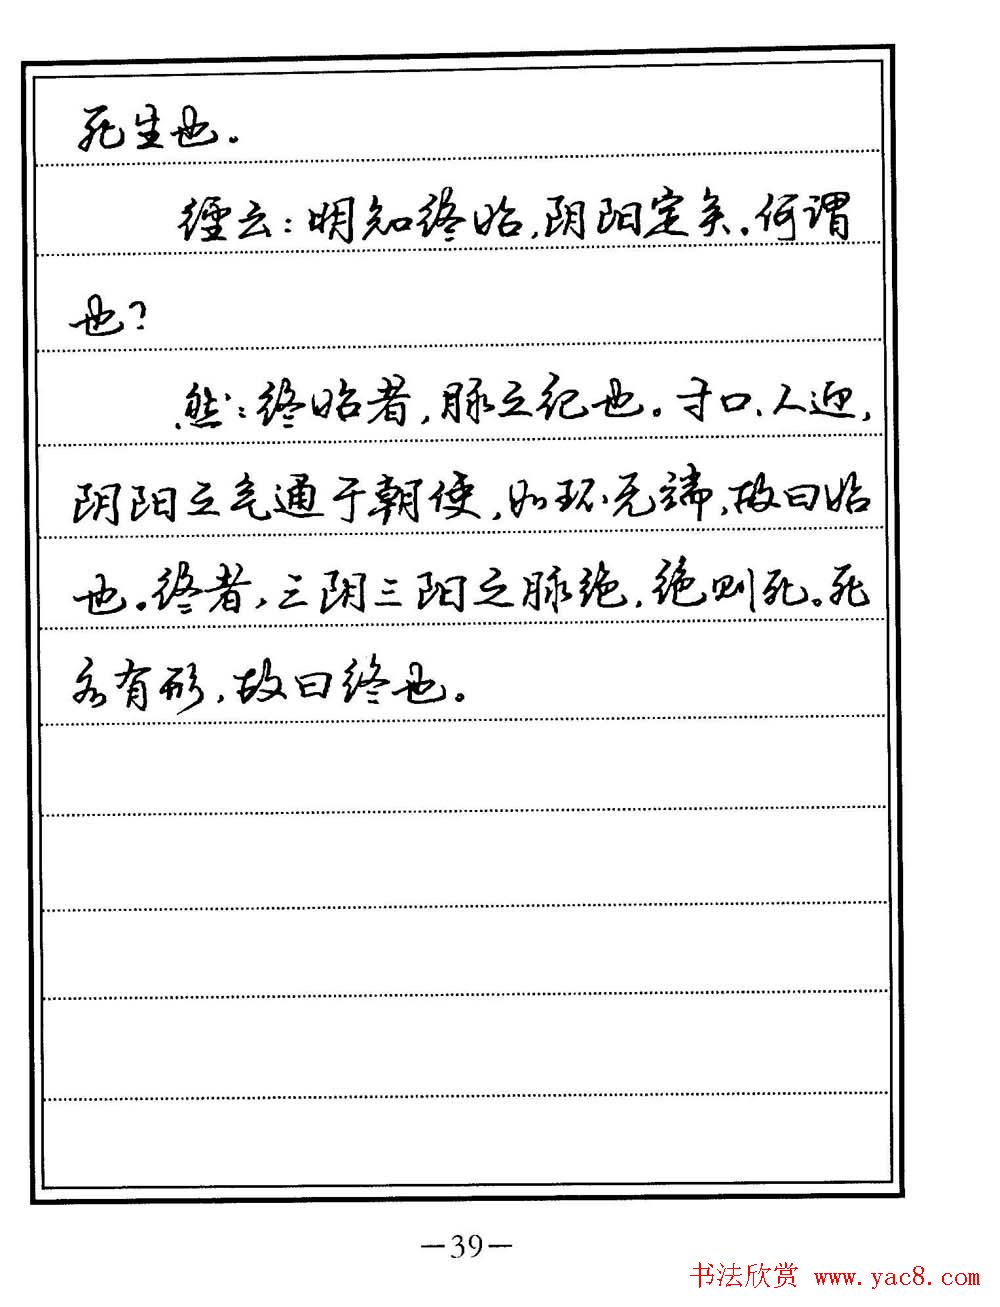 死生也。
经云：明知终始，阴阳定矣。何谓
也？
然：终始者，脉之纪也。寸口、人迎，
阴阳之气通于朝使，如环无端，故曰始
也。终者，三阴三阳之脉绝，绝则死。死
各有形，故曰终也。
—39—
书法欣赏 www.yac8.com